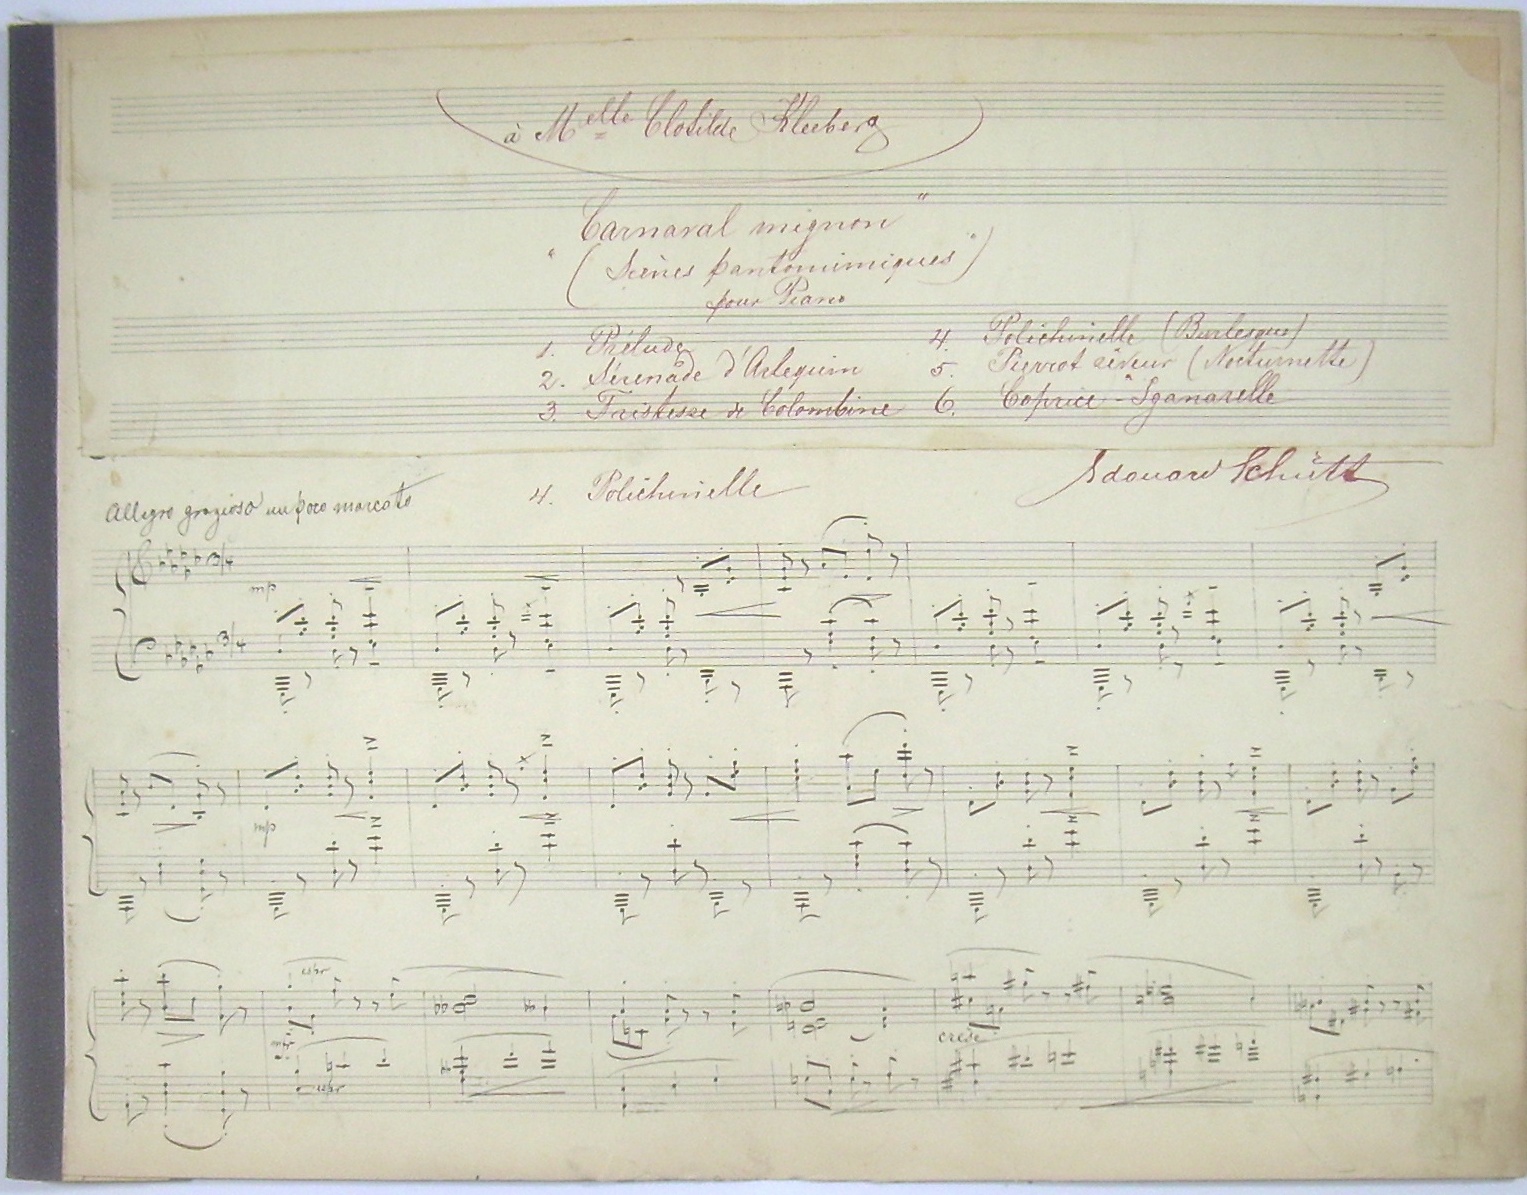 à Melle Clotilde Kleeberg
"Carnaval mignon"
"(Scènes pantomimiques")
pour Piano
1. Prélude
2. Sérénade d'Arlequin
3. Tristesse de Colombine
4. Polichinelle (Burlesque)
5. Pierrot rêveur (Nocturnette)
6. Caprice-Sganarelle
Edouard Schütt
4. Polichinelle
Allegro grazioso un poco marcato
3/4
mp
3/4
mp
espr
mp
espr
cresc